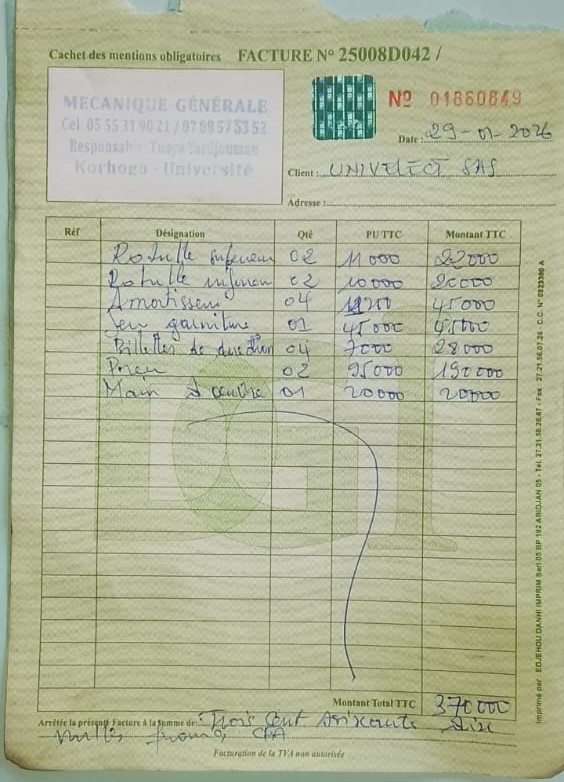 Cachet des mentions obligatoires FACTURE N° 25008D042 /
MECANIQUE GÉNÉRALE
Cel: 05 55 31 90 21 / 07 09 57 53 52
Korhogo - Université
N° 01860849
Date : 29-01-2026
Client : UNIVELECT SAS
Adresse :
Réf Désignation Qté PU TTC Montant TTC
Rotulle superieur 02 11000 22000
Rotulle inferieur 02 10000 20000
Amortisseur 04 11250 45000
Jeu garniture 01 45000 45000
Billettes de direction 04 7000 28000
Pneu 02 95000 190000
Main d'oeuvre 01 20000 20000
Montant Total TTC 370000
Arrêtée la présente Facture à la Somme de: Trois Cent Soixante Dix
mille francs CFA
Facturation de la TVA non autorisée
Imprimé par : EDJEHOU DANHI IMPRIM Sarl 05 BP 192 ABIDJAN 05 - Tél. 27.21.56.26.67 - Fax : 27.21.56.07.26 - C.C. N° 0823380 A